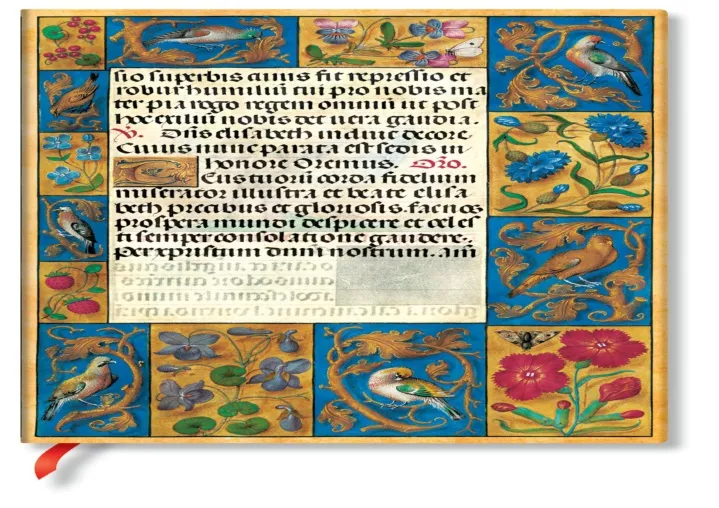 sio superbis cuius fit repressio et
robur humiliū tui pro nobis ma
ter pia rogo regem omniū ut post
hoc exiliū nobis det uera gaudia.
℣. Dn̄s elisabeth induit decore
Cuius nunc parata est sedis in
honore Oremus. Orō.
Deus tuorū corda fidelium
miserator illustra et beate elisa
beth precibus et gloriosis. fac nos
prospera mundi despicere et celes
ti semper consolatione gaudere.
Per xpristum dnm̄ nostrum. am̄